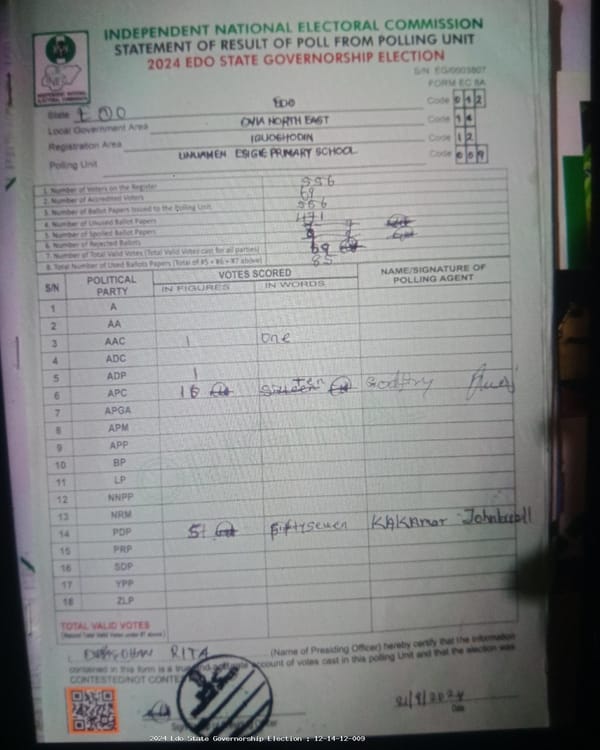 INDEPENDENT NATIONAL ELECTORAL COMMISSION
STATEMENT OF RESULT OF POLL FROM POLLING UNIT
2024 EDO STATE GOVERNORSHIP ELECTION
S/N: EG/0003807
FORM EC 8A
State EDO EDO Code 012
Local Government Area OVIA NORTH EAST Code 14
Registration Area IGUOSHODIN Code 12
Polling Unit UNUAMEN ESIGIE PRIMARY SCHOOL Code 009
1. Number of Voters on the Register 556
2. Number of Accredited Voters 69
3. Number of Ballot Papers Issued to the Polling Unit 556
4. Number of Unused Ballot Papers 471
5. Number of Spoiled Ballot Papers
6. Number of Rejected Ballots
7. Number of Total Valid Votes (Total Valid Votes cast for all parties) 69
8. Total Number of Used Ballots Papers (Total of #5 + #6 + #7 above) 85
S/N POLITICAL PARTY VOTES SCORED NAME/SIGNATURE OF POLLING AGENT
IN FIGURES IN WORDS
1 A
2 AA
3 AAC 1 one
4 ADC
5 ADP 1
6 APC 16 Sixteen Ten Godfry
7 APGA
8 APM
9 APP
10 BP
11 LP
12 NNPP
13 NRM
14 PDP 51 fiftyseven KAKAmor Johnbull
15 PRP
16 SDP
17 YPP
18 ZLP
TOTAL VALID VOTES
I, RITA (Name of Presiding Officer) hereby certify that the information
contained in this form is a true and account of votes cast in this polling Unit and that the election was
CONTESTED/NOT CONTESTED
21/9/2024
Date
2024 Edo State Governorship Election : 12-14-12-009